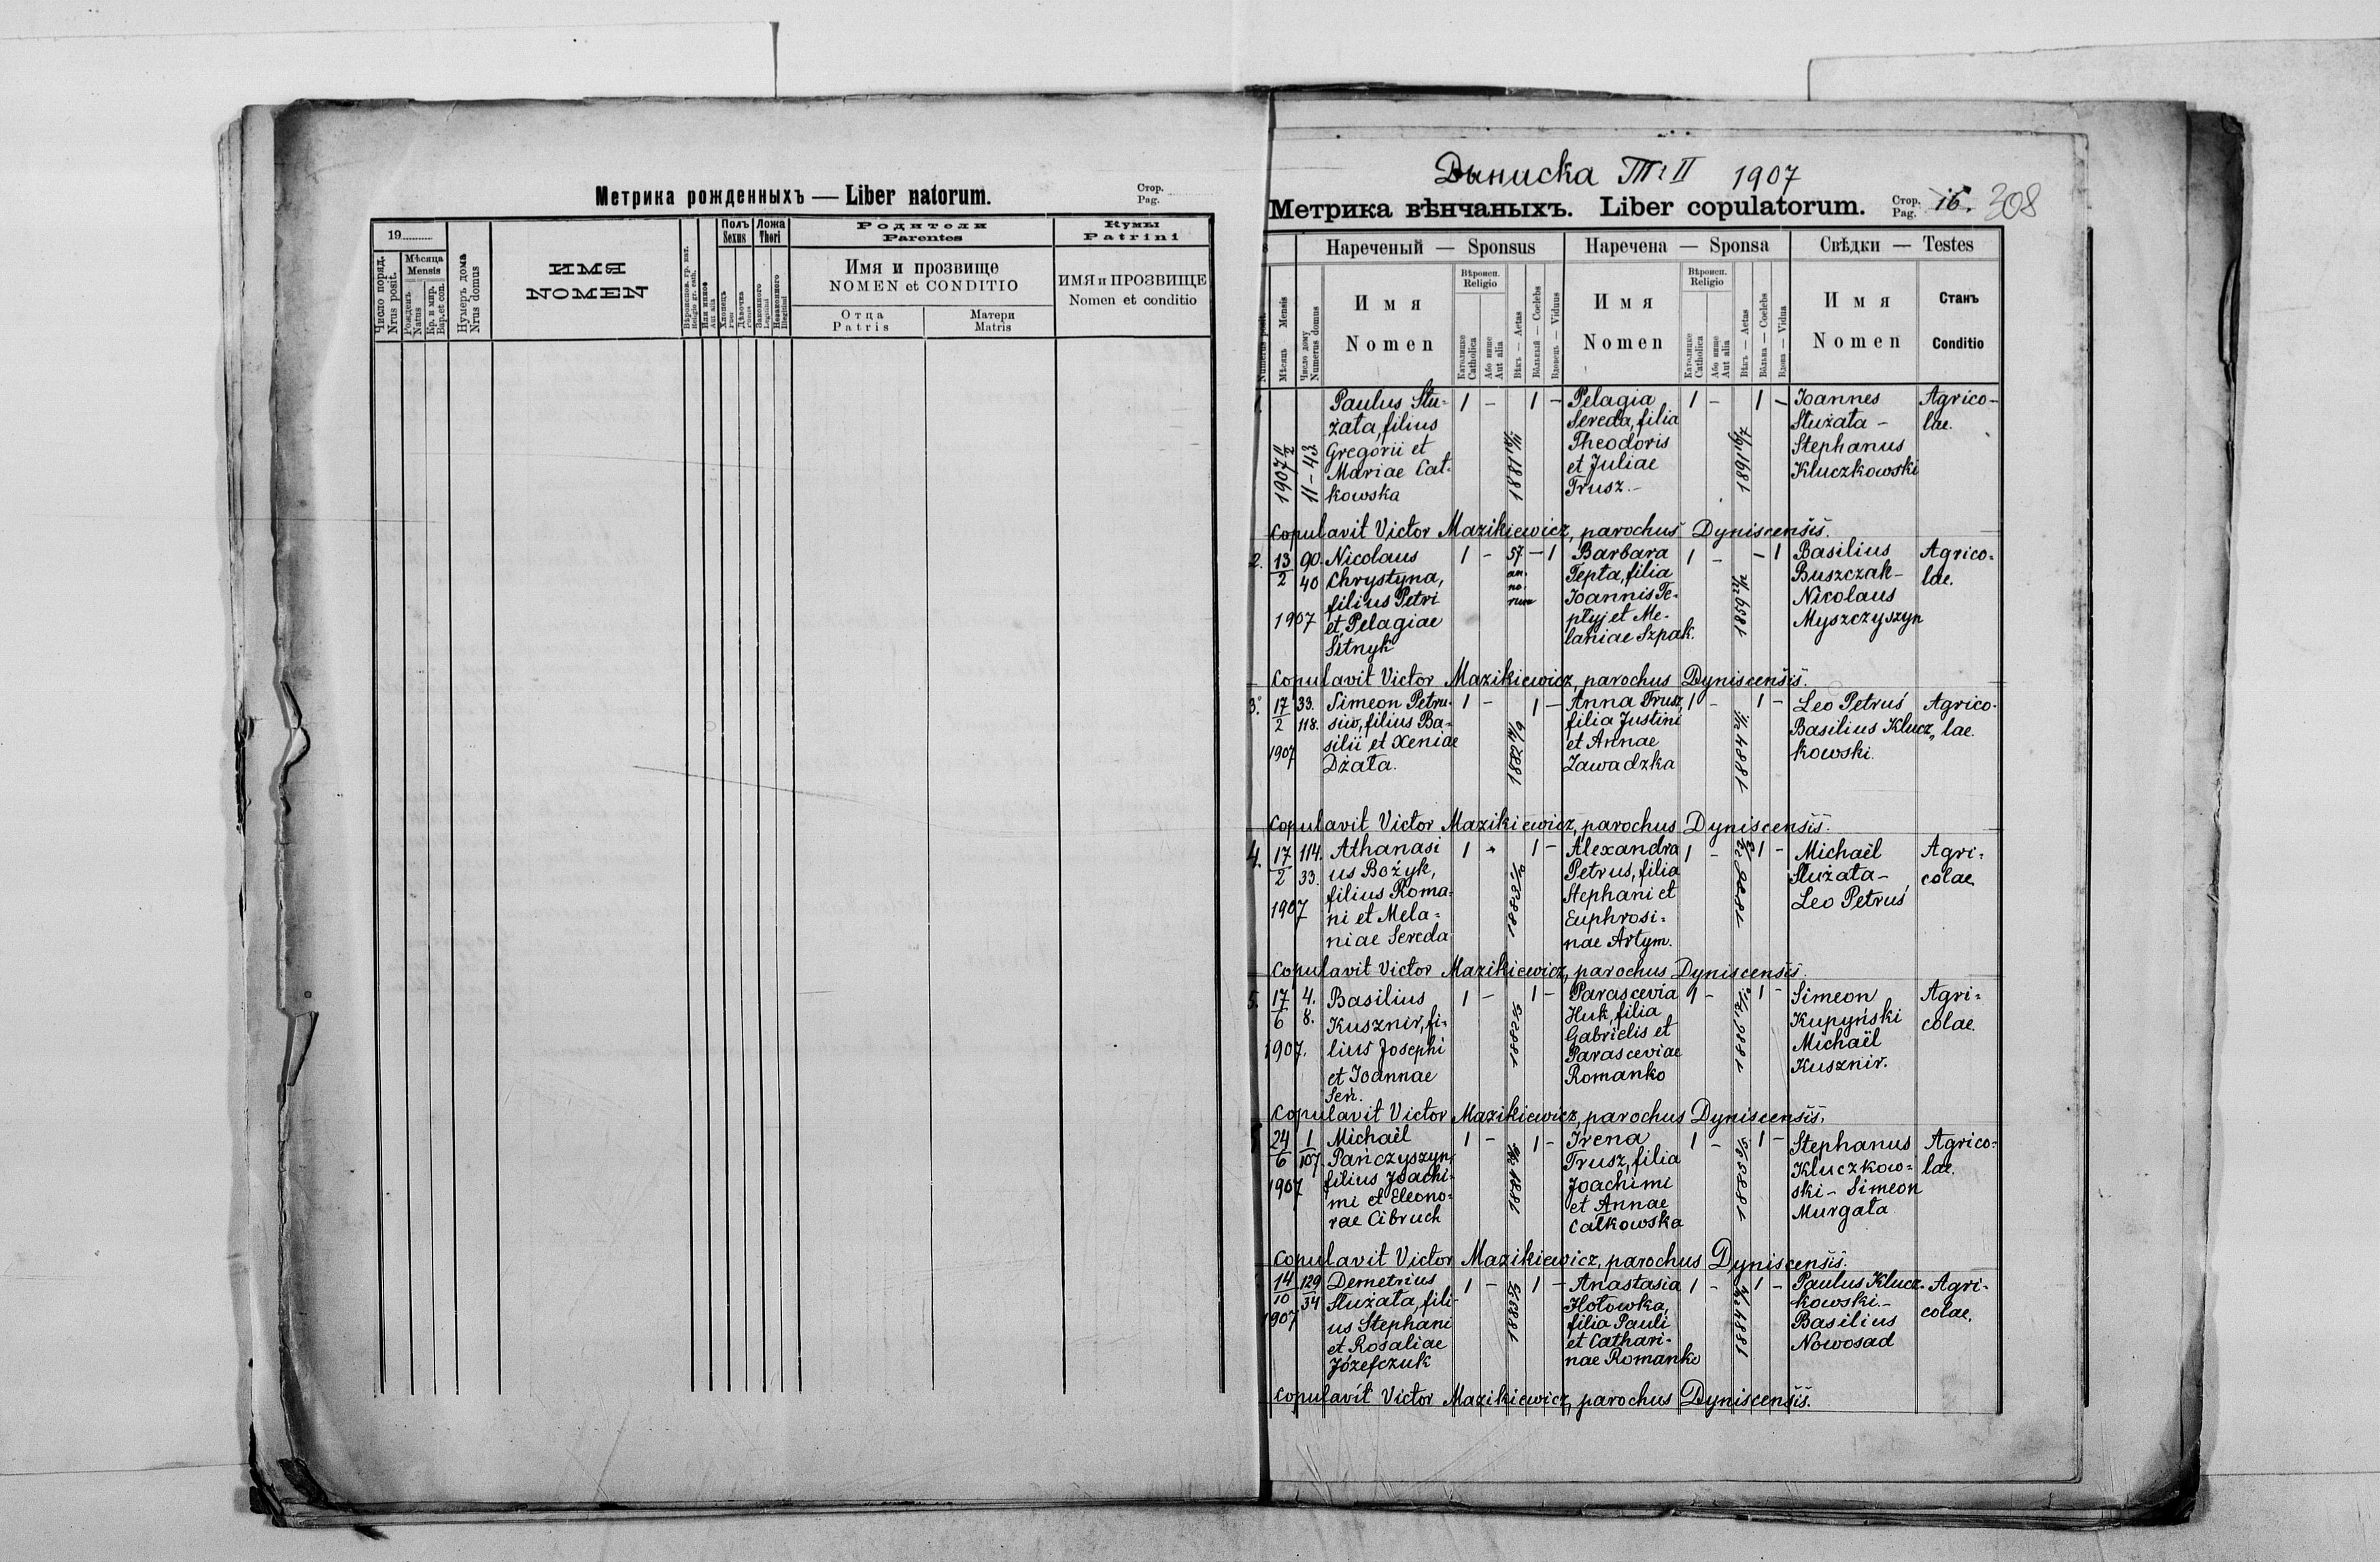 Метрика рожденныхъ — Liber natorum.
Стор.
Pag.
19
Число поряд.
Nrus posit.
Мѣсяца
Mensis
Рожденъ
Natus
Кр. и мир.
Bap. et con.
Нумеръ дома
Nrus domus
ИМЯ
NOMEN
Полъ
Sexus
Ложа
Thori
Родители
Parentes
Имя и прозвище
NOMEN et CONDITIO
Отца
Patris
Матери
Matris
Кумы
Patrini
ИМЯ и ПРОЗВИЩЕ
Nomen et conditio
1907
Метрика вѣнчаныхъ. Liber copulatorum.
Стор.
Pag.
16.
308
Нареченый — Sponsus
Наречена — Sponsa
Свѣдки — Testes
Мѣсяць Mensis
Число дому
Numerus domus
Имя
Nomen
Вѣроисп.
Religio
Католицке
Catholica
Або инше
Aut alia
Вѣкъ — Aetas
Вôльный — Coelebs
Вдовець — Viduus
Имя
Nomen
Вѣроисп.
Religio
Католицке
Catholica
Або инше
Aut alia
Вѣкъ — Aetas
Вôльна — Coelebs
Вдова — Vidua
Имя
Nomen
Станъ
Conditio
1.
11 - 43
Paulus Słu-
żała, filius
Gregorii et
Mariae Cał-
kowska
1 - 1 -
Pelagia
Sereda, filia
Theodoris
et Juliae
Trusz.-
1 - 1 -
Joannes
Służała -
Stephanus
Kluczkowski
Agrico-
lae.
Copulavit Victor Mazikiewicz, parochus Dyniscensis.
2. 13/2 1907
90. 40
Nicolaus
Chrystyna,
filius Petri
et Pelagiae
Sitnyk
1 - 57 - 1
an-
no-
rum
Barbara
Tepta, filia
Joannis Te-
płyj et Me-
laniae Szpak.
1 - - 1
Basilius
Buszczak -
Nicolaus
Myszczyszyn
Agrico-
lae.
Copulavit Victor Mazikiewicz, parochus Dyniscensis.
3. 17/2 1907
33. 118.
Simeon Petru-
siw, filius Ba-
silii et Xeniae
Dżała.
1 - 1 -
Anna Trusz,
filia Justini
et Annae
Zawadzka
1 - 1 -
Leo Petruś
Basilius Klucz„
kowski.
Agrico-
lae.
Copulavit Victor Mazikiewicz, parochus Dyniscensis.
4. 17/2 1907
114. 33.
Athanasi
us Bożyk,
filius Roma-
ni et Mela-
niae Sereda
1 - 1 -
Alexandra
Petrus, filia
Stephani et
Euphrosi-
nae Artym.
1 - 1 -
Michaël
Służała -
Leo Petruś
Agri-
colae
Copulavit Victor Mazikiewicz, parochus Dyniscensis.
5. 17/6 1907.
4. 8.
Basilius
Kusznir, fi-
lius Josephi
et Joannae
Seń.
1 - 1 -
Parascevia
Huk, filia
Gabrielis et
Parasceviae
Romanko
1 - 1 -
Simeon
Kupyński
Michaël
Kusznir.
Agri-
colae.
Copulavit Victor Mazikiewicz, parochus Dyniscensis.
24/6 1907
1/107.
Michaël
Pańczyszyn
filius Joachi-
mi et Eleono-
rae Cibruch
1 - 1 -
Irena
Trusz, filia
Joachimi
et Annae
Całkowska
1 - 1 -
Stephanus
Kluczkow-
ski - Simeon
Murgała
Agrico-
lae.
Copulavit Victor Mazikiewicz, parochus Dyniscensis.
14/10 1907
129/34
Demetrius
Służała, fili-
us Stephani
et Rosaliae
Józefczuk
1 - 1 -
Anastasia
Hołowka,
filia Pauli
et Cathari-
nae Romanko
1 - 1 -
Paulus Klucz-
kowski.-
Basilius
Nowosad
Agri-
colae.
Copulavit Victor Mazikiewicz, parochus Dyniscensis.